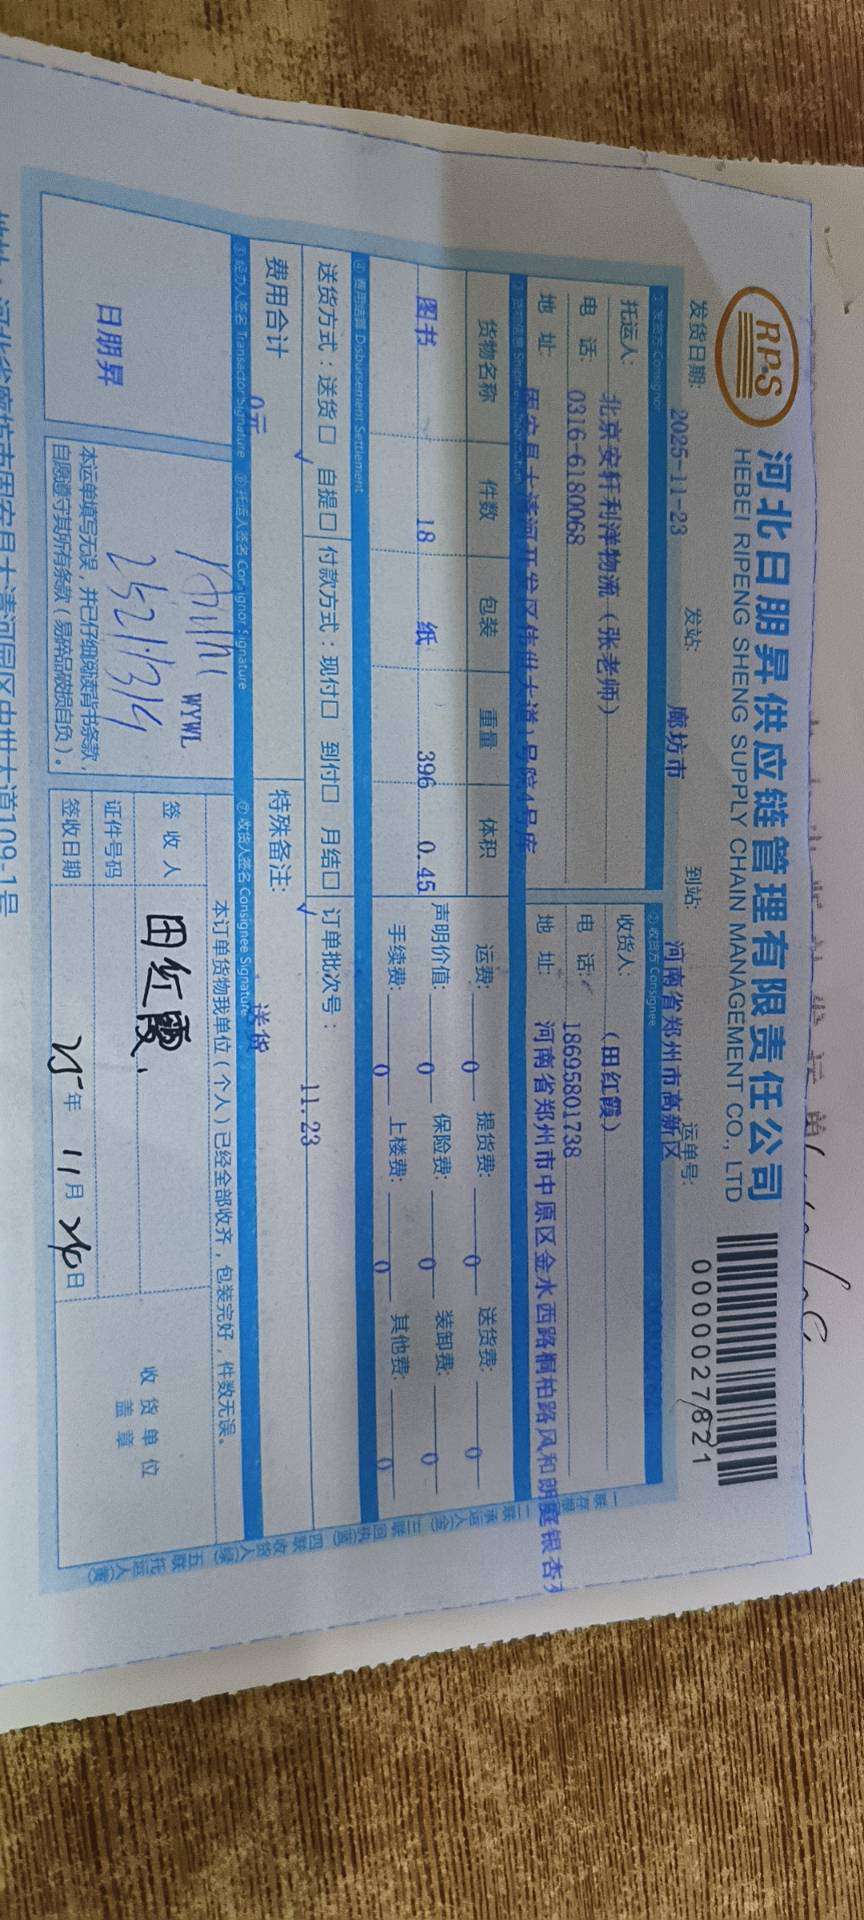 RP·S
河北日朋昇供应链管理有限责任公司
HEBEI RIPENG SHENG SUPPLY CHAIN MANAGEMENT CO., LTD
0000027821
发货日期: 2025-11-23 发站: 廊坊市 到站: 河南省郑州市高新区 运单号:
① 发货方 Consignor
托运人: 北京安轩利洋物流（张老师）
电 话: 0316-6180068
地 址: 固安县大清河开发区伟世大道1号院4号库
② 收货方 Consignee
收货人: （田红霞）
电 话: 18695801738
地 址: 河南省郑州市中原区金水西路桐柏路风和朗庭银杏
货物名称 件数 包装 重量 体积
图书 18 纸 396 0.45
运费: 0 提货费: 0 送货费: 0
声明价值: 0 保险费: 0 装卸费: 0
手续费: 0 上楼费: 0 其他费: 0
④ 费用结算 Disbursement Settlement
送货方式：送货□ 自提□ 付款方式：现付□ 到付□ 月结□ 订单批次号： 11.23
✓ ✓
费用合计 0元 特殊备注: 送货
⑤ 经办人签名 Transactor Signature ⑥ 托运人签名 Consignor Signature ⑦ 收货人签名 Consignee Signature
日朋昇
WYWL
本运单填写无误，并已仔细阅读背书条款，
自愿遵守其所有条款（易碎品破损自负）。
本订单货物我单位（个人）已经全部收齐，包装完好，件数无误。
签 收 人 田红霞
证件号码
签收日期 25年 11月 26日
收 货 单 位
盖 章
一联存根 二联承运人㊎ 三联回执㊎ 四联收货人㊎ 五联托运人㊎
地址：河北省廊坊市固安县大清河园区中世大道109-1号